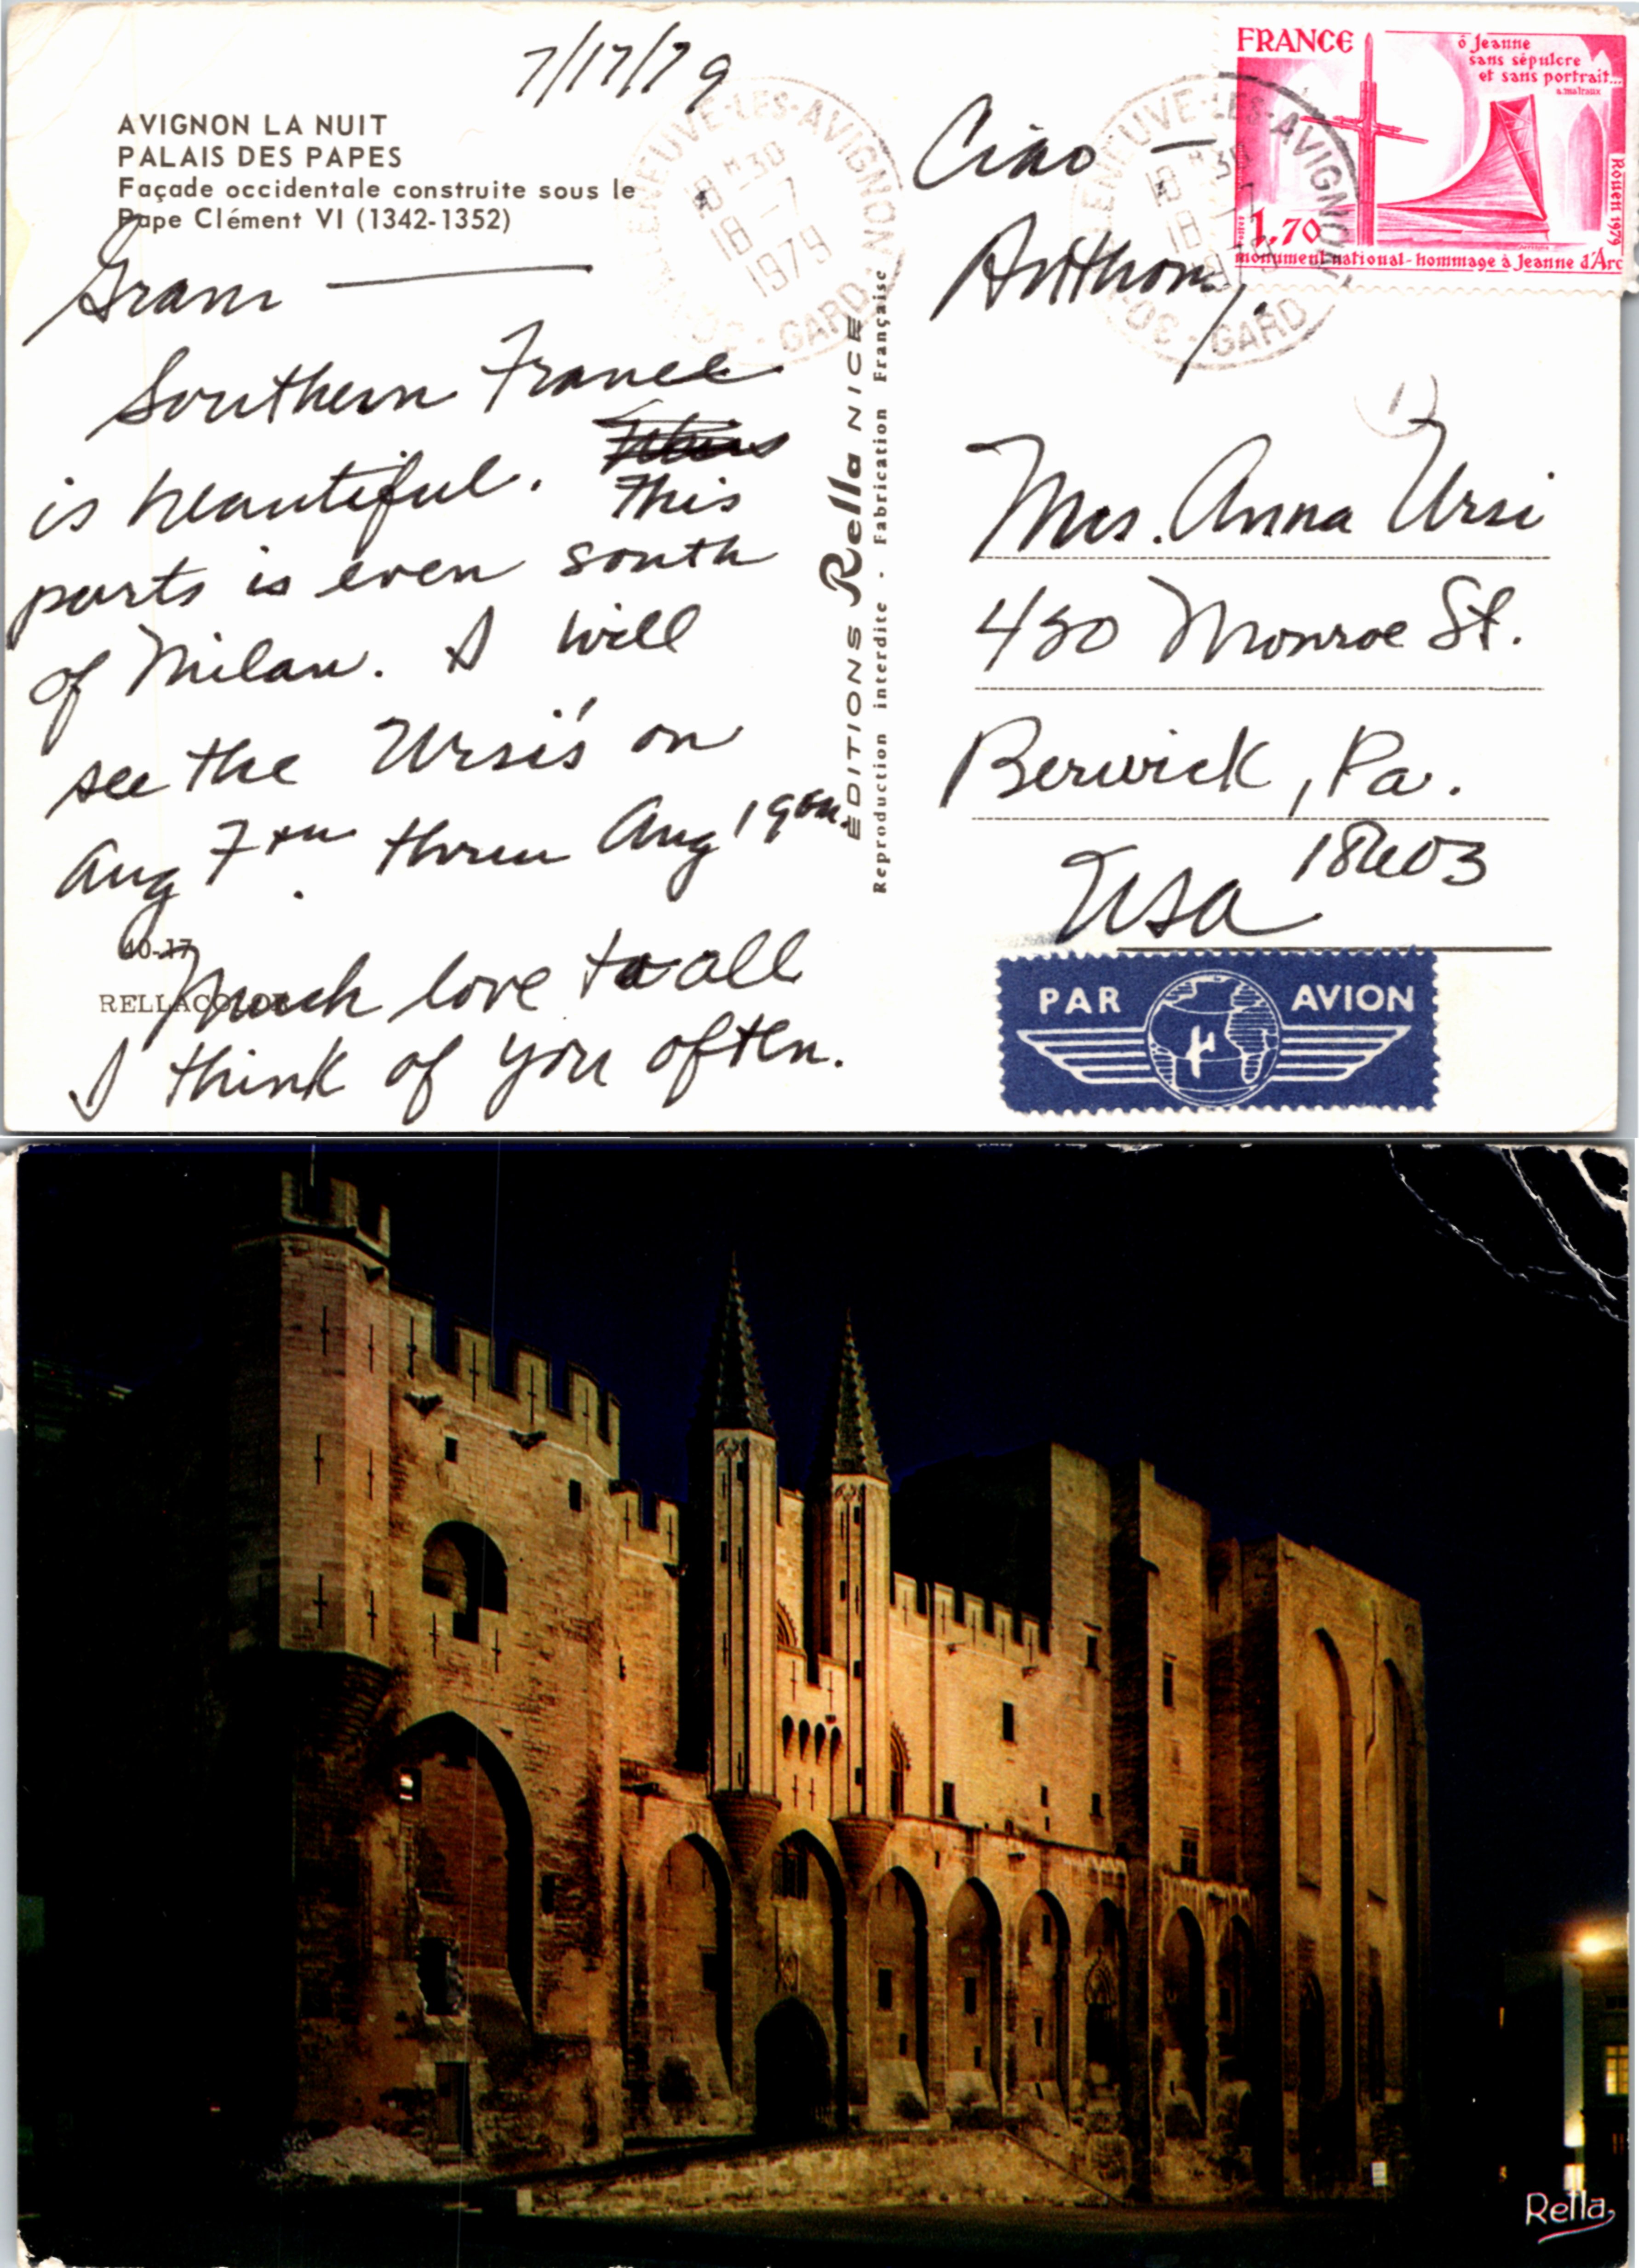 7/17/79
AVIGNON LA NUIT
PALAIS DES PAPES
Façade occidentale construite sous le
Pape Clément VI (1342-1352)
Gram —
Southern France
is beautiful.
This
parts is even south
of Milan. I will
see the Ursi's on
Aug 7th thru Aug 19th.
Much love to all
I think of you often.
40-17
RELLACOLOR
VILLENEUVE-LES-AVIGNON
18-7
1979
GARD
ÉDITIONS Rella NICE
Reproduction interdite - Fabrication Française
Ciao —
Anthony.
FRANCE
ô Jeanne
sans sépulcre
et sans portrait...
a.malraux
Rouen 1979
1,70
monument national-hommage à Jeanne d'Arc
VILLENEUVE-LES-AVIGNON
18
GARD
1
Mrs. Anna Ursi
450 Monroe St.
Berwick, Pa.
18603
USA
PAR AVION
Rella